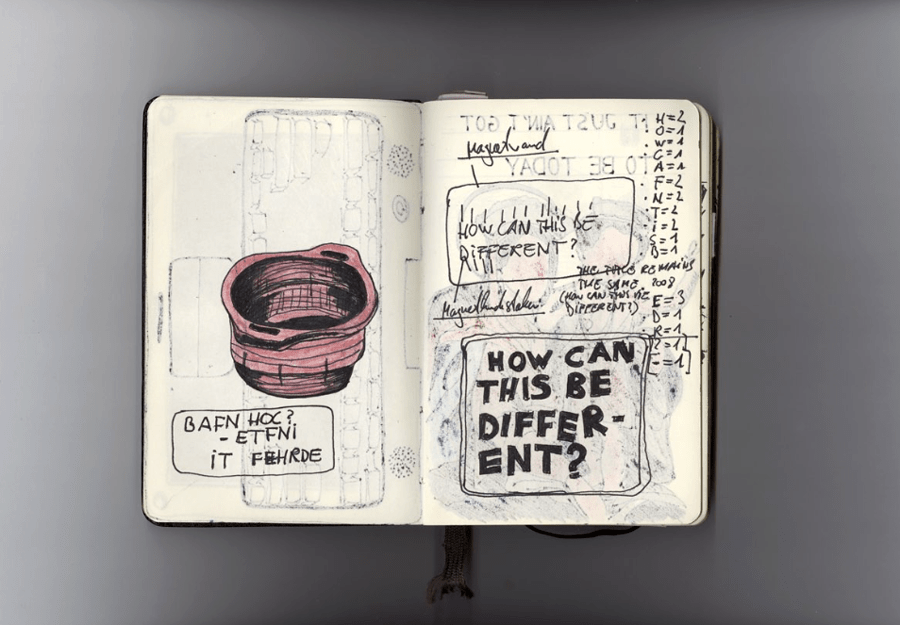 BAFN HOC?
- ETFNi
iT FEHRDE
iT JUST AiN'T GOT
TO BE TODAY
HOW CAN THiS BE
DiFFERENT?
THE TALE REMAiNS
THE SAME. 2008
(HOW CAN THiS BE
DiFFERENT?)
HOW CAN
THIS BE
DIFFER-
ENT?
H=2
O=1
W=1
C=1
A=1
F=2
N=2
T=2
i=2
S=1
B=1
E=3
D=1
R=1